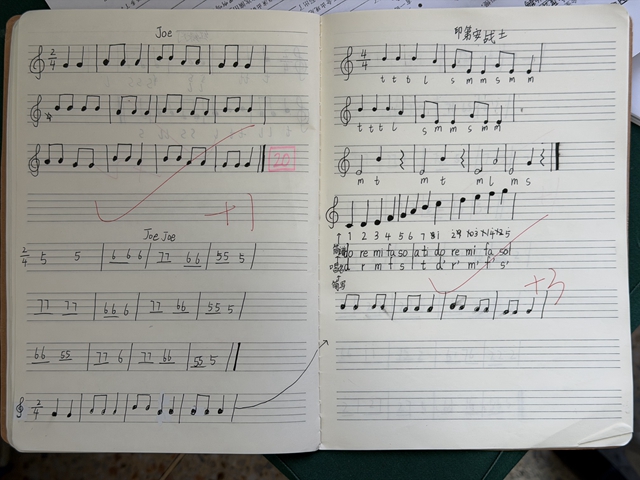 Joe
2 4
20
+1
Joe Joe
2 4 5 5 | 6 6 6 | 77 66 | 55 5
77 77 | 66 6 | 77 66 | 55 5
66 55 | 77 6 | 77 66 | 55 5
2 4
印第安战士
4 4
t t t l s m m s m m
t t t l s m m s m m
m t m t m l m s
1 2 3 4 5 6 7
do re mi fa so la ti do re mi fa sol
d r m f s l t d' r' m' f' s'
+3